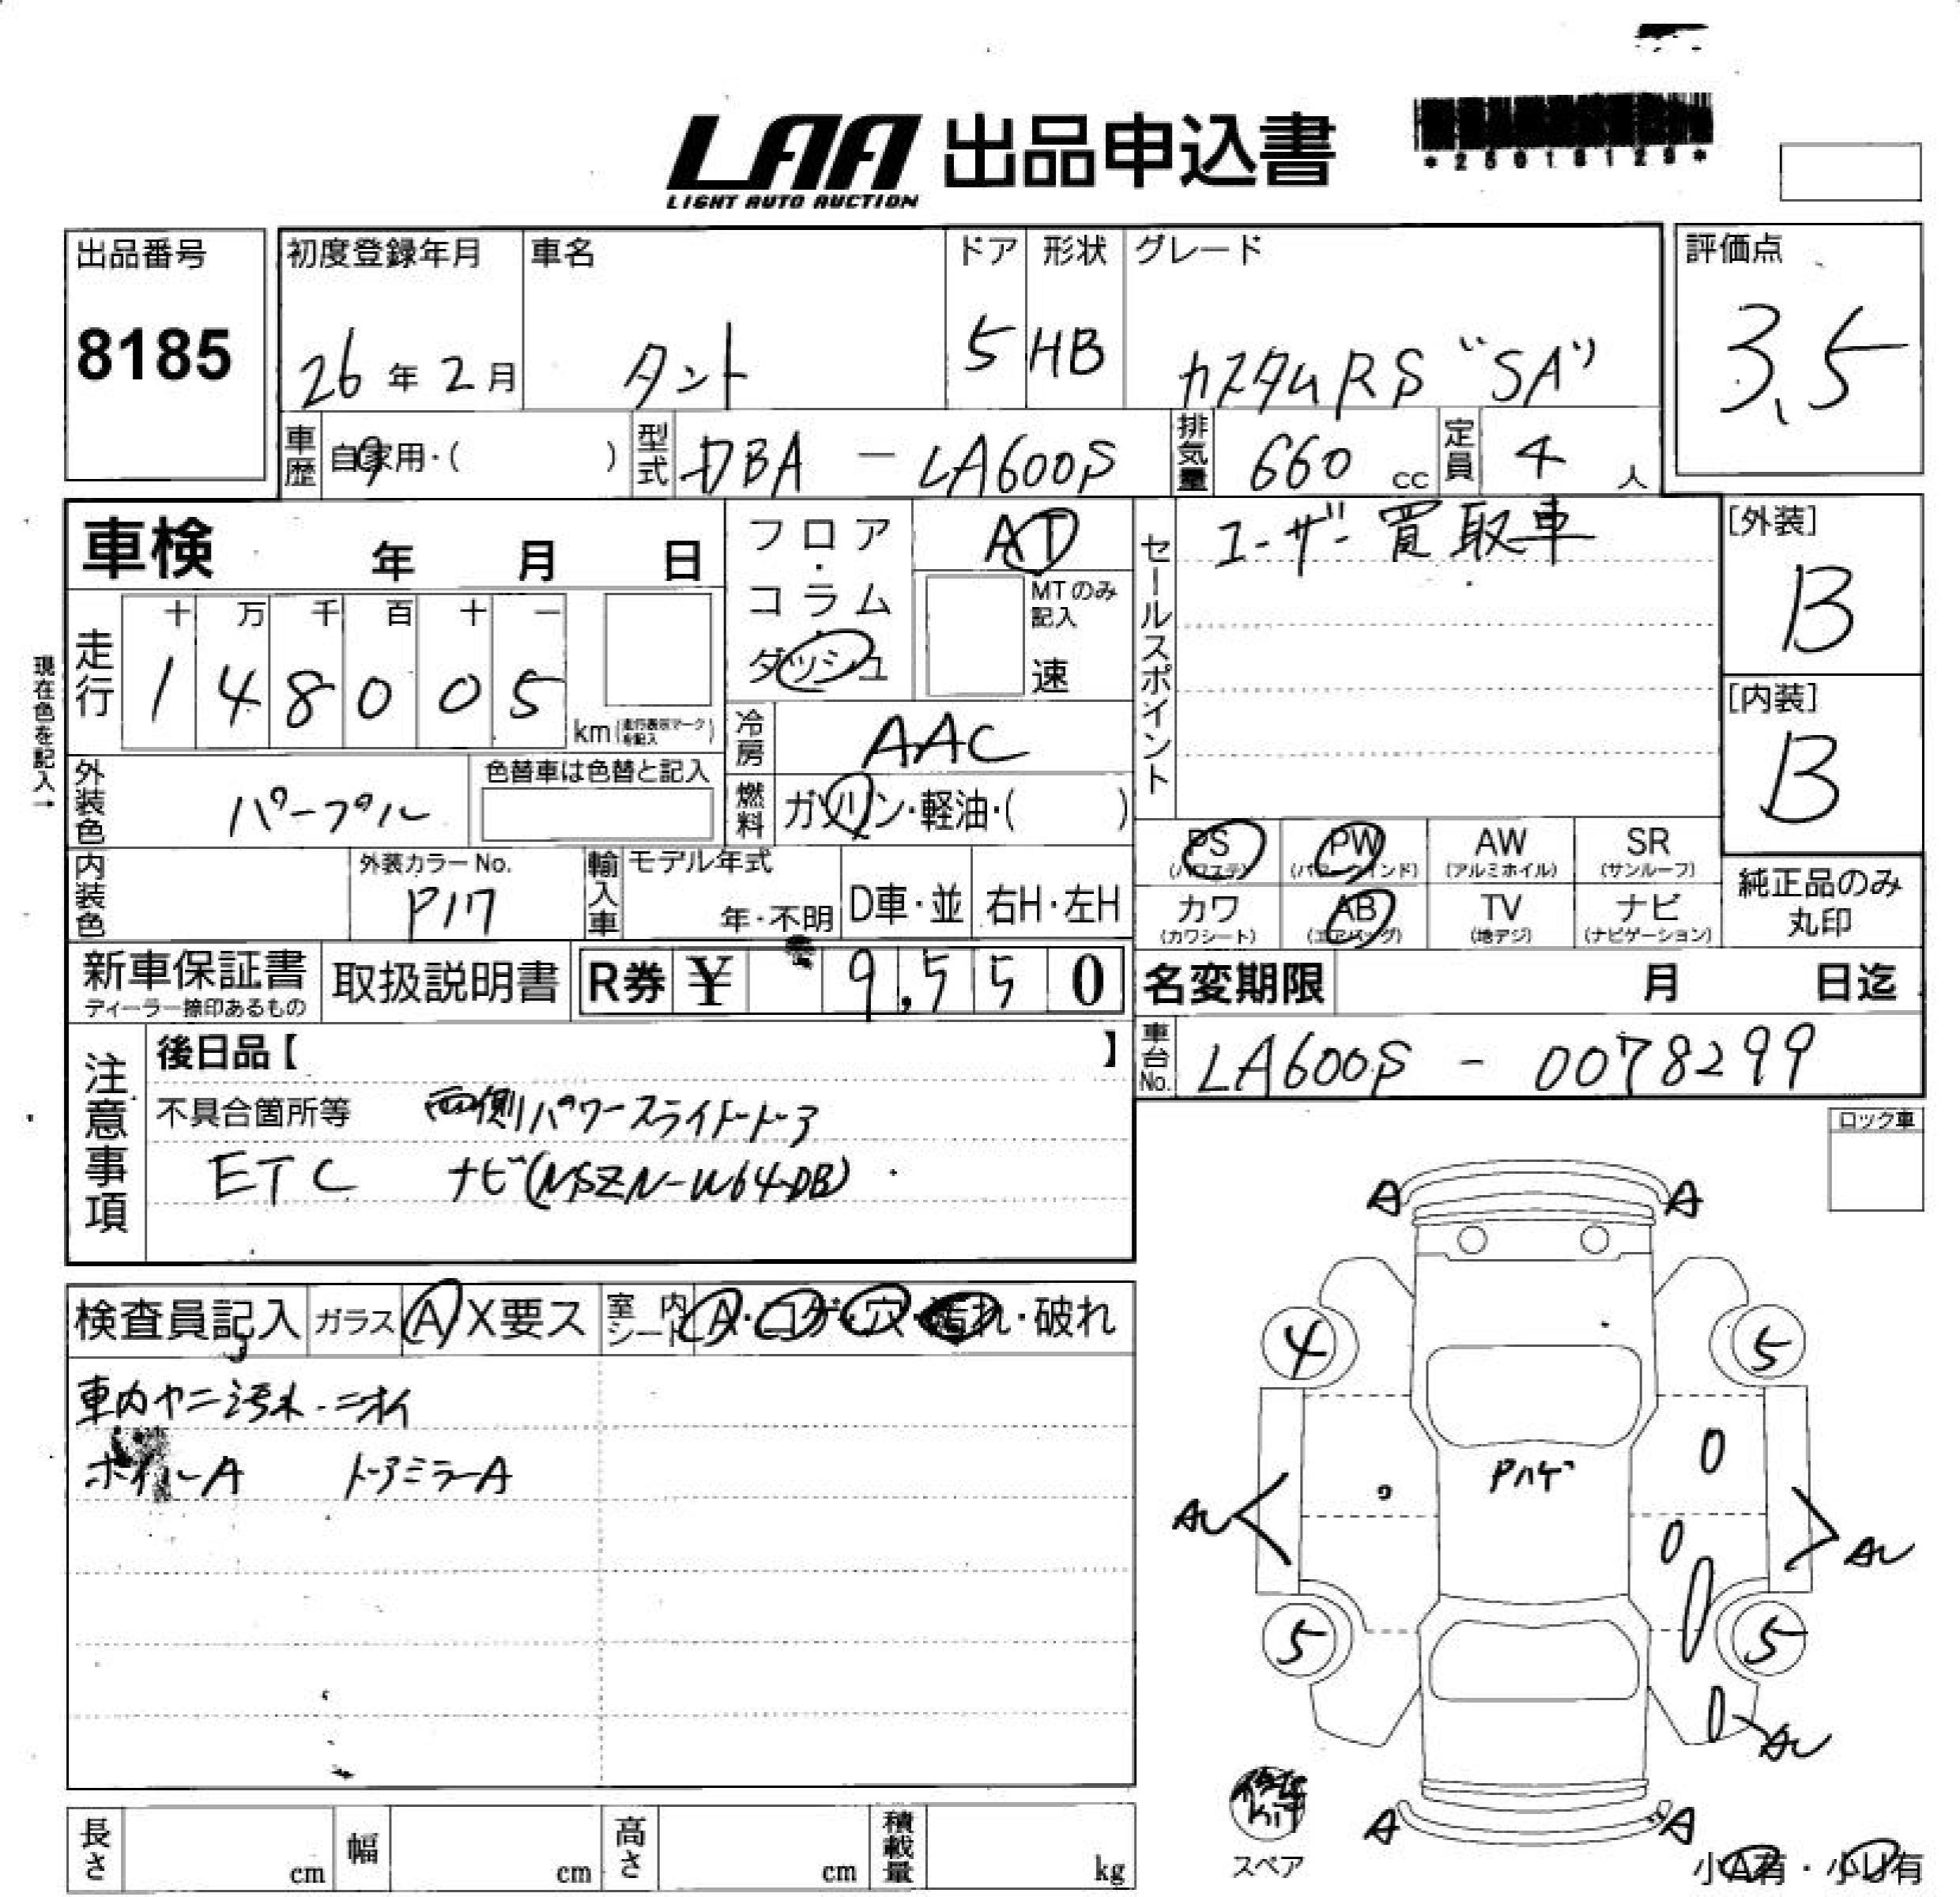 LAA 出品申込書
LIGHT AUTO AUCTION
*25018129*
出品番号
8185
初度登録年月
26年2月
車名
タント
ドア
5
形状
HB
グレード
カスタムRS "SA"
評価点
3.5
車歴 自家用・( )
型式 DBA - LA600S
排気量 660 cc
定員 4 人
車検 年 月 日
フロア・コラム・ダッシュ
AT
MTのみ記入
速
セールスポイント
ユーザー買取車
[外装]
B
[内装]
B
現在色を記入→
走行
十 万 千 百 十 一
1 4 8 0 0 5
km(走行表示マークを記入)
冷房 AAC
外装色 パープル
色替車は色替と記入
燃料 ガソリン・軽油・( )
内装色
外装カラーNo.
P17
輸入車
モデル年式
年・不明
D車・並
右H・左H
PS
(パワステ)
PW
(パワーウインド)
AW
(アルミホイル)
SR
(サンルーフ)
カワ
(カワシート)
AB
(エアバッグ)
TV
(地デジ)
ナビ
(ナビゲーション)
純正品のみ
丸印
新車保証書
ディーラー捺印あるもの
取扱説明書
R券 ¥ 9,550
名変期限 月 日迄
車台No. LA600S - 0078299
注意事項
後日品【 】
不具合箇所等 両側パワースライドドア
ETC ナビ(NSZN-W64DB)
ロック車
検査員記入
ガラス A X要ス
室内シート A・コゲ・穴・汚れ・破れ
車内ヤニ汚れ・ニオイ
ホイールA ドアミラーA
A A
4 5
Pハゲ
AU AU
5 5
AU
A A
修理kit
スペア
小A有・小U有
長さ cm
幅 cm
高さ cm
積載量 kg